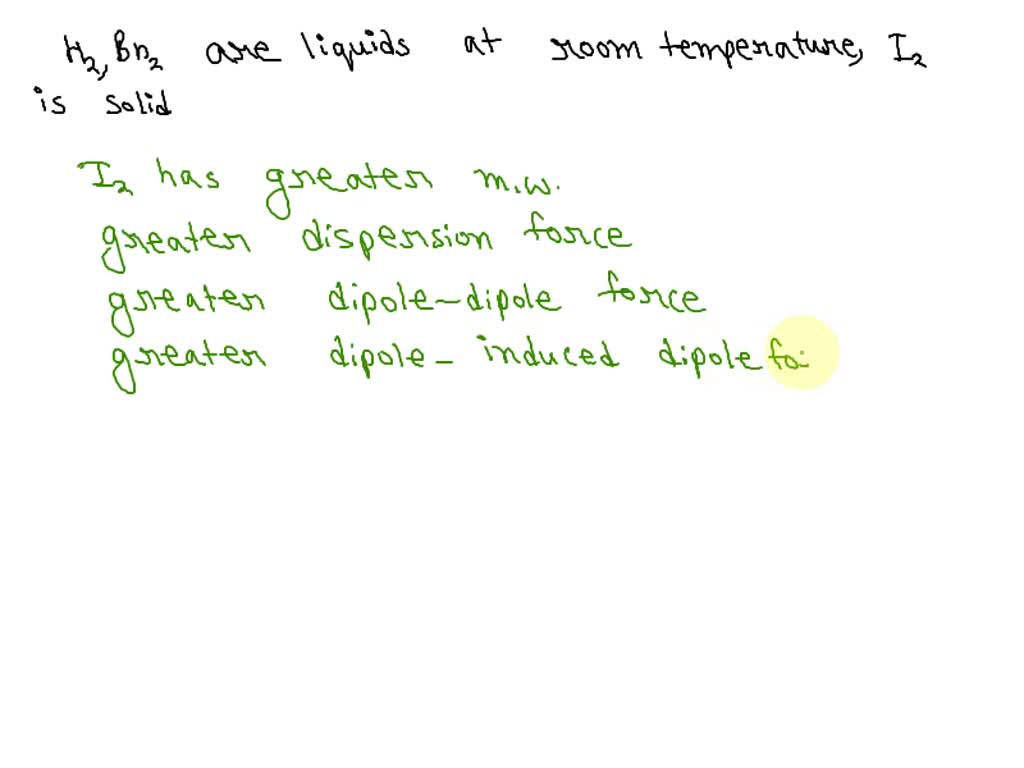 H₂, Br₂ are liquids at room temperature, I₂
is solid
I₂ has greater m.w.
greater dispersion force
greater dipole-dipole force
greater dipole- induced dipole fo